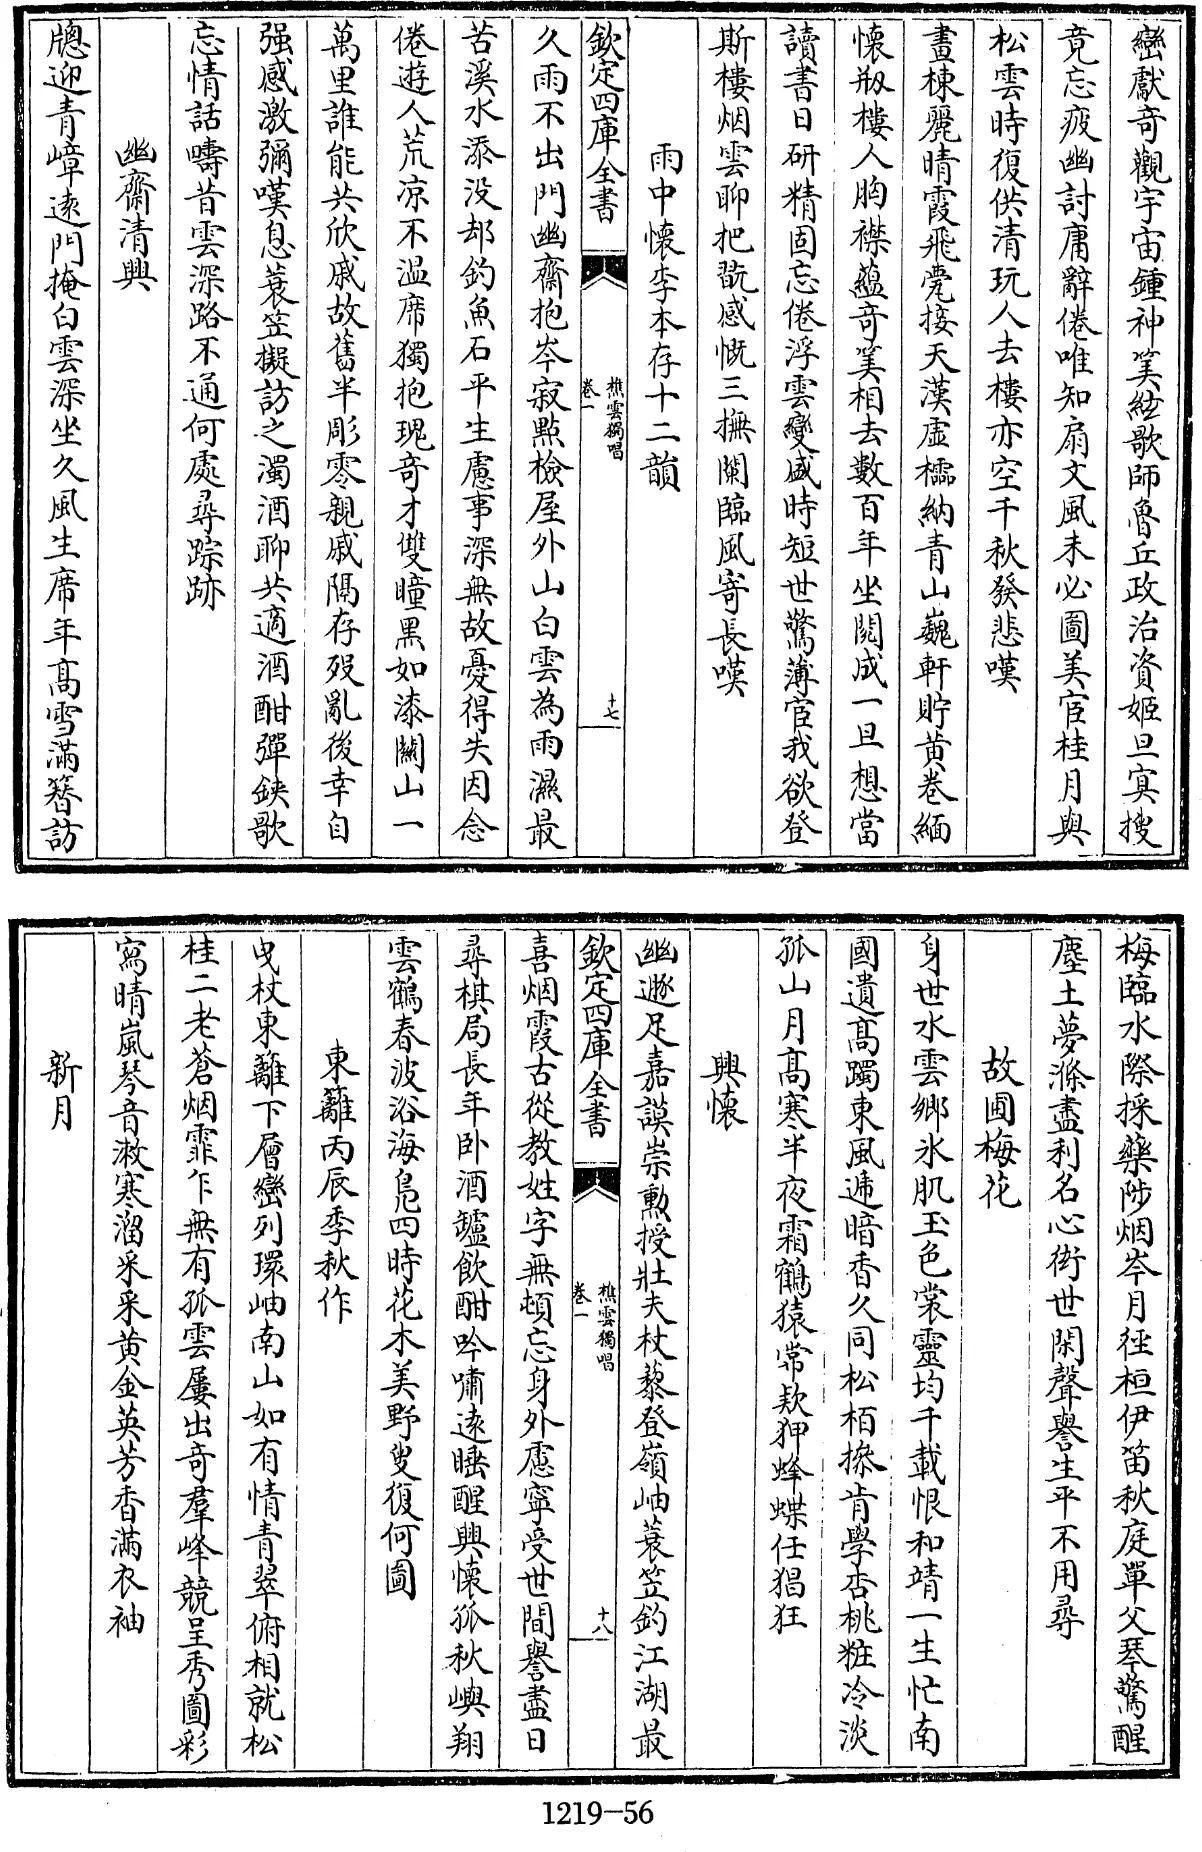 巒獻奇觀宇宙鍾神筭絃歌師魯丘政治資姬旦寘搜
竟忘疲幽討庸辭倦唯知扇文風未必圖美宦桂月與
松雲時復供清玩人去樓亦空千秋發悲嘆
畫棟麗晴霞飛甍接天漢虛櫺納青山巍軒貯黄卷緬
懷剏樓人胸襟藴奇筭相去數百年坐閱成一旦想當
讀書日研精固忘倦浮雲變盛時短世驚薄宦我欲登
斯樓烟雲聊把翫感慨三撫闌臨風寄長嘆
雨中懷李本存十二韻
欽定四庫全書
樵雲獨唱
卷一
十七
久雨不出門幽齋抱岑寂點檢屋外山白雲為雨濕最
苦溪水添没却釣魚石平生慮事深無故憂得失因念
倦遊人荒凉不溫席獨抱瑰奇才雙瞳黑如漆關山一
萬里誰能共欣戚故舊半彫零親戚隔存殁亂後幸自
强感激彌嘆息蓑笠擬訪之濁酒聊共適酒酣彈鋏歌
忘情話疇昔雲深路不通何處尋踪跡
幽齋清興
牕迎青嶂遠門掩白雲深坐久風生席年髙雪滿簪訪
梅臨水際採藥陟烟岑月徑桓伊笛秋庭單父琴驚醒
塵土夢滌盡利名心衒世閑聲譽生平不用尋
故圃梅花
身世水雲鄉氷肌玉色裳靈均千載恨和靖一生忙南
國遺髙躅東風遞暗香久同松栢操肯學杏桃粧冷淡
孤山月髙寒半夜霜鶴猿常欵狎蜂蝶任猖狂
興懷
幽遯足嘉謨崇勲授壯夫杖藜登嶺岫蓑笠釣江湖最
欽定四庫全書
樵雲獨唱
卷一
十八
喜烟霞古從教姓字無頓忘身外慮寧受世間譽盡日
尋棋局長年卧酒鑪飲酣吟嘯遠睡醒興懷孤秋嶼翔
雲鶴春波浴海鳬四時花木美野叟復何圖
東籬丙辰季秋作
曳杖東籬下層巒列環岫南山如有情青翠俯相就松
桂二老蒼烟霏乍無有孤雲屢出奇羣峰競呈秀圖彩
寫晴嵐琴音漱寒溜采采黄金英芳香滿衣袖
新月
1219-56